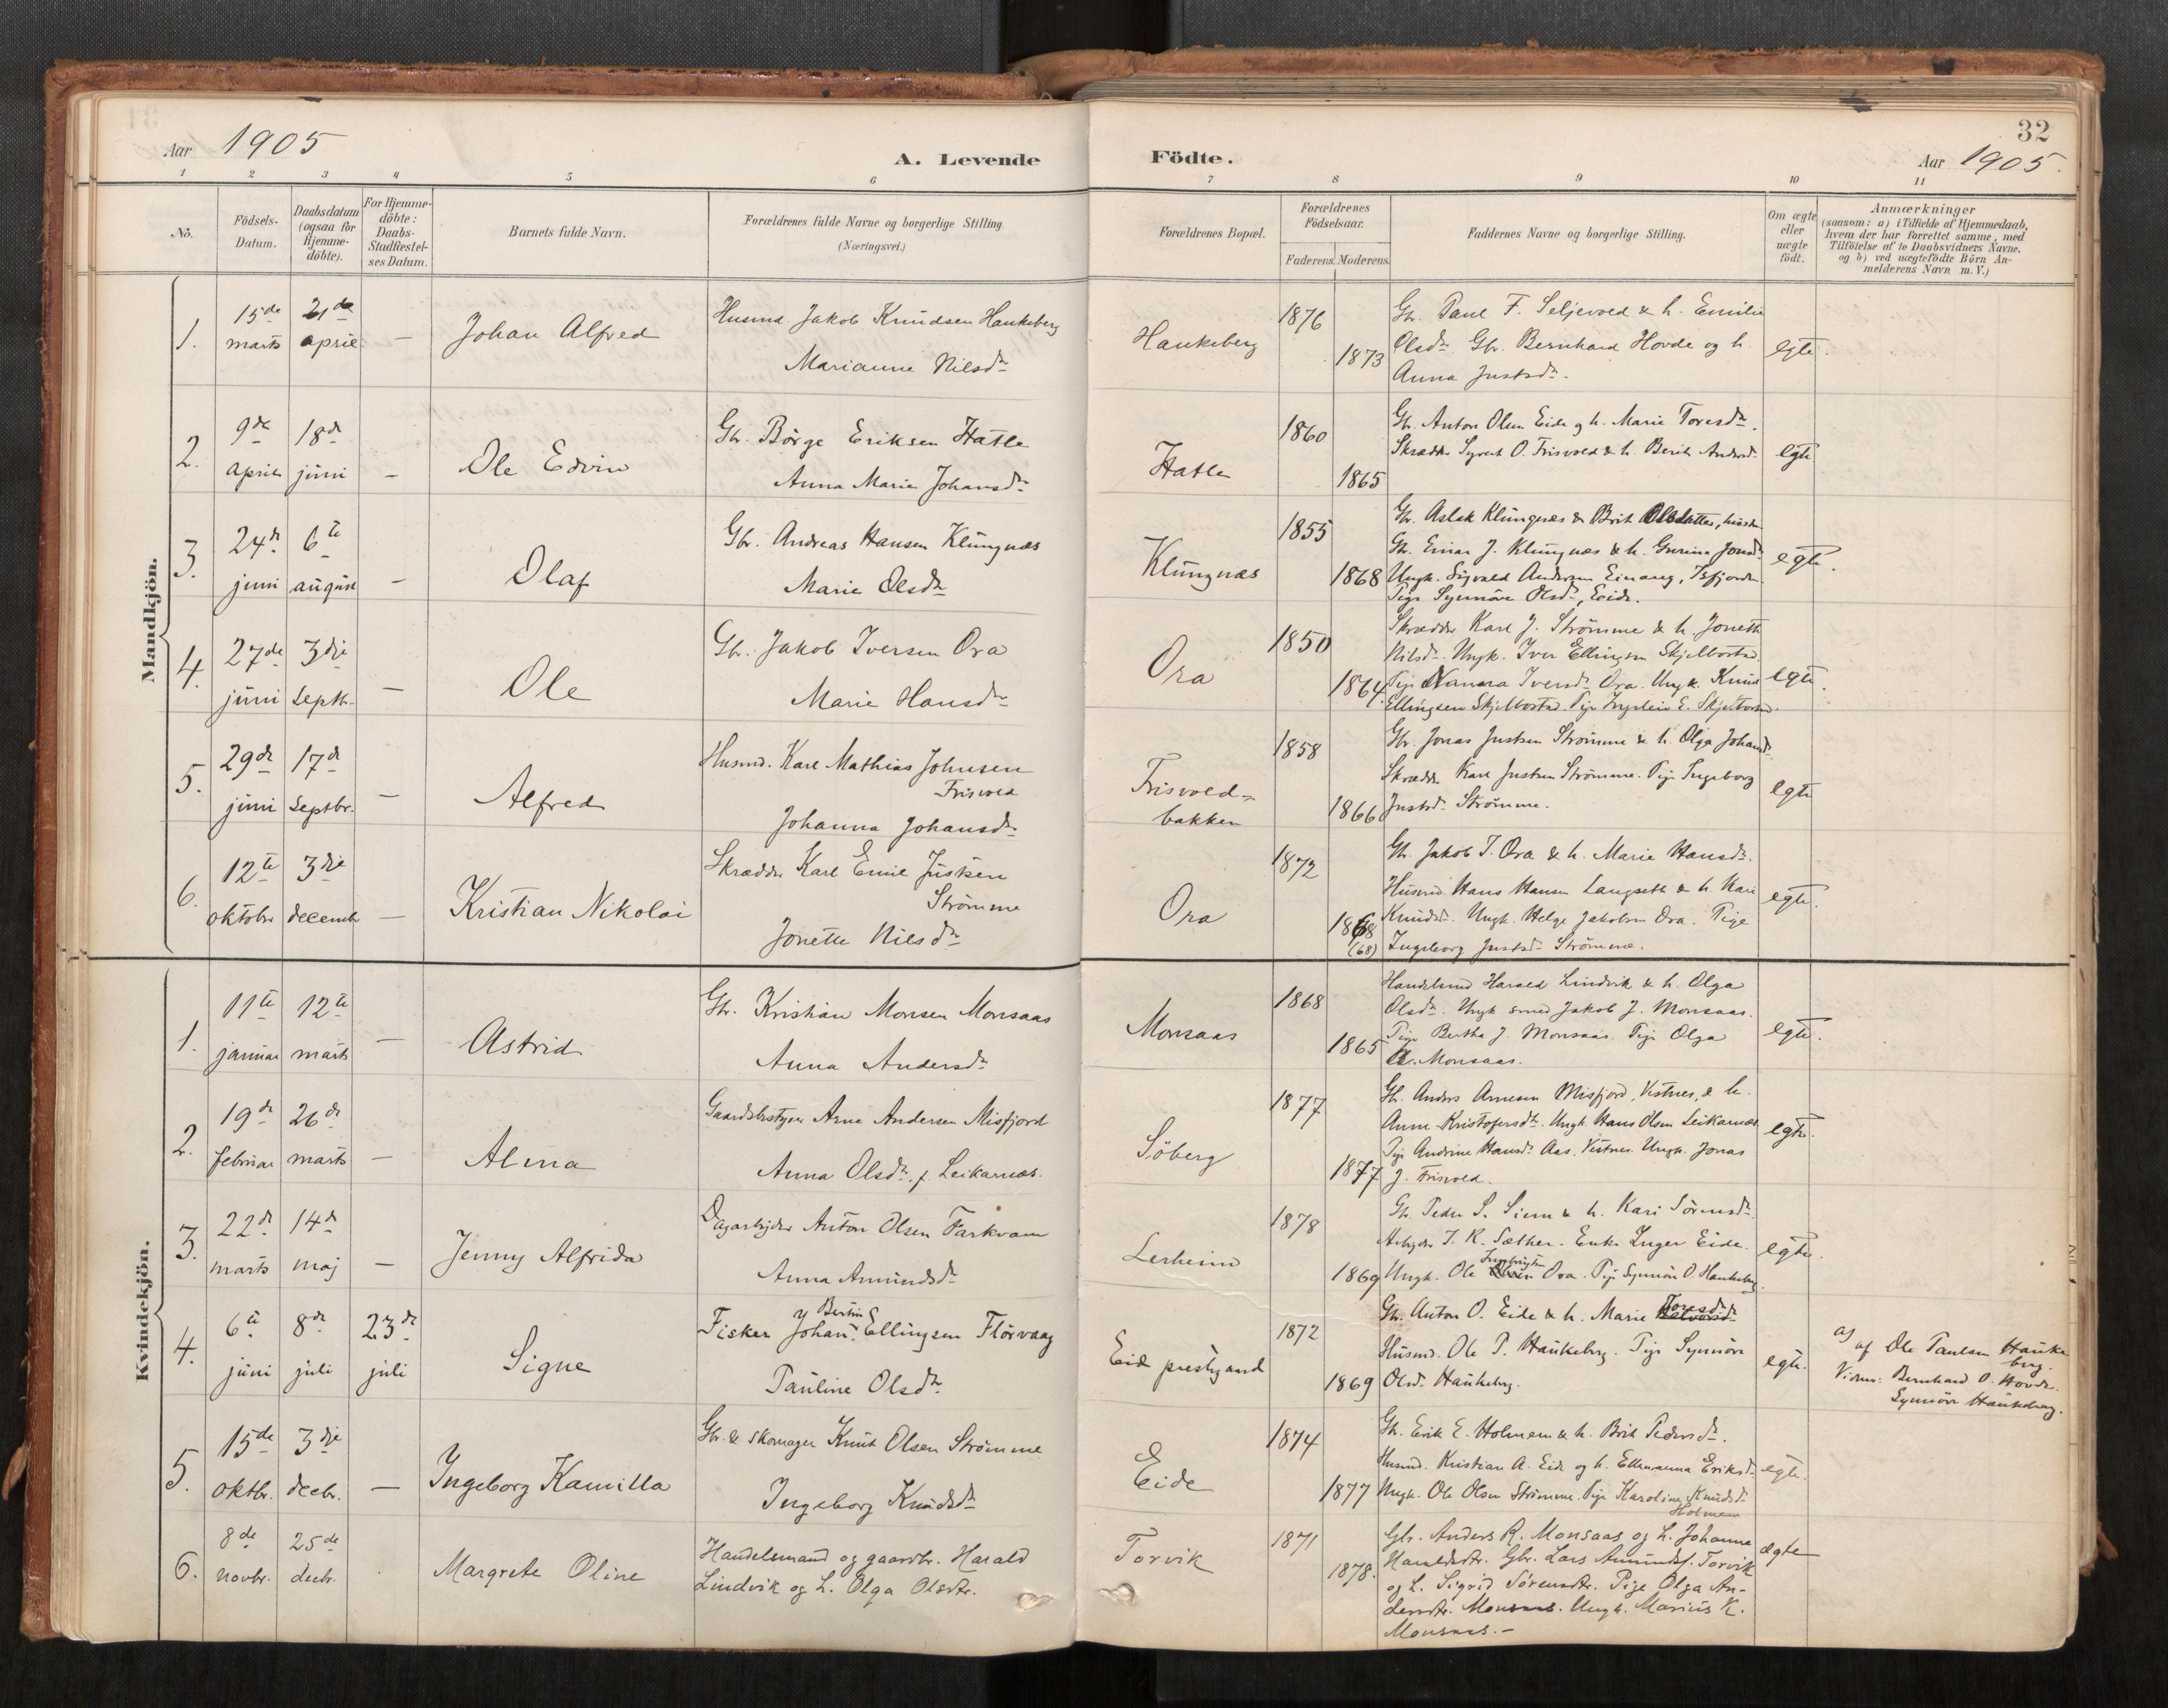 32
Aar 1905
A. Levende Födte.
Aar 1905.
1 2 3 4 5 6 7 8 9 10 11
No.
Födsels-
Datum.
Daabsdatum
(ogsaa for
Hjemme-
döbte).
For Hjemme-
döbte:
Daabs-
Stadfæstel-
ses Datum.
Barnets fulde Navn.
Forældrenes fulde Navne og borgerlige Stilling.
(Næringsvei.)
Forældrenes Bopæl.
Forældrenes
Födselsaar.
Faderens. Moderens.
Faddernes Navne og borgerlige Stilling.
Om ægte
eller
uægte
födt.
Anmærkninger
(saasom: a) i Tilfælde af Hjemmedaab,
hvem der har forrettet samme, med
Tilföielse af to Daabsvidners Navne.
og b) ved uægtefödte Börn An-
melderens Navn m. V.)
Mandkjön.
1.
15de
marts
21de
april
—
Johan Alfred
Husmd. Jakob Knudsen Haukeberg
Marianne Nilsdr
Haukeberg
1876
1873
Gbr. Paul F. Seljevold & h. Emilie
Olsdr. Gbr. Bernhard Hovde og h.
Anna Justsdr.
egte.
2.
9de
april
18de
juni
—
Ole Edvin
Gbr. Börge Eriksen Hatle
Anna Marie Johansdr
Hatle
1860
1865
Gbr. Anton Olsen Eide og h. Marie Toresdr.
Skrædder Syvert O. Frisvold & h. Berit Andersdr
egte
3.
24de
juni
6te
august
—
Olaf
Gbr. Andreas Hansen Klungnæs
Marie Olsdr
Klungnæs
1855
1868
Gbr. Aslak Klungnes & Brit Olsdatter, hustru
Gbr. Einar J. Klungnæs & h. Gurina Jonsdr
Ungk. Sigvald Andersen Einang, Isfjorden.
Pige Synnöve Olsdr, Eide.
egte.
4.
27de
juni
3dje
septb.
—
Ole
Gbr. Jakob Iversen Ora
Marie Hansdr
Ora
1850
1864.
Skrædder Karl J. Strömme & h. Jonette
Nilsdr. Ungk. Iver Ellingsen Skjelbostad.
Pige Nanna Iversdr Ora. Ungk. Knud
Ellingsen Skjelbostad. Pige E. Skjelbostad.
egte.
5.
29de
juni
17de
septbr.
—
Alfred
Husmd. Karl Mathias Johnsen
Frisvold
Johanna Johansdr
Frisvold-
bakken
1858
1866
Gbr. Jonas Justsen Strömme & h. Olga Johansdr
Skrædder Karl Justsen Strömme. Pige Ingeborg
Justsdr Strömme.
egte
6.
12te
oktobr
3dje
decembr
—
Kristian Nikolai
Skrædder Karl Emil Justsen
Strömme
Jonette Nilsdr
Ora
1872
1868
(68)
Gbr. Jakob I. Ora & h. Marie Hansdr.
Husmd. Hans Hansen Langseth & h. Kari
Knudsdr. Ungk. Helge Jakobsen Ora. Pige
Ingeborg Justsdr Strömme.
egte.
Kvindekjön.
1.
11te
januar
12te
marts
—
Astrid
Gbr. Kristian Monsen Monsaas
Anna Andersdr
Monsaas
1868
1865
Handelsmd Harald Lindvik & h. Olga
Olsdr. Ungk. smed Jakob J. Monsaas.
Pige Bertha J. Monsaas. Pige Olga
A. Monsaas.
egte.
2.
19de
februar
26de
marts
—
Alma
Gaardsbestyrer Arne Andersen Misfjord
Anna Olsdr. f. Leikarnæs.
Söberg
1877
1877
Gbr. Anders Arnesen Misfjord, Vestnes, & h.
Anne Kristofersdr. Ungk. Hans Olsen Leikarnæs.
Pige Andrine Hansdr Aas, Vestnes. Ungk. Jonas
J. Frisvold.
egte.
3.
22de
marts
14de
maj
—
Jenny Alfrida
Dagarbejder Anton Olsen Farkvam
Anna Amundsdr
Lerheim
1878
1869
Gbr. Peder S. Siem & h. Kari Sörensdr.
Arbejder I. K. Sæther. Enke Inger Eide.
Ungk. Ole Ora. Pige Synnöv O. Haukeberg.
egte.
4.
6te
juni
8de
juli
23de
juli
Signe
Fisker Johan Bertin Ellingsen Flörvaag
Pauline Olsdr.
Eid prestgaard
1872
1869
Gbr. Anton O. Eide & h. Marie Toresdr
Husmd. Ole P. Haukeberg. Pige Synnöv
Olsdr. Haukeberg.
egte.
a) af Ole Paulsen Hauke
berg.
Vidner: Bernhard O. Hovde.
Synnöv Haukeberg.
5.
15de
oktbr.
3dje
decbr.
—
Ingeborg Kamilla
Gbr. & skomager Knut Olsen Strömme
Ingeborg Knudsdr
Eide
1874
1877
Gbr. Erik E. Holmem & h. Brit Pedersdr.
Husmd. Kristian A. Eide og h. Ellenanna Eriksdr
Ungk. Ole Olsen Strömme. Pige Karoline Knudsdr
Holmem
egte.
6.
8de
novbr.
25de
decbr.
Margrete Oline
Handelsmand og gaardbr. Harald
Lindvik og h. Olga Olsdtr.
Torvik
1871
1878.
Gbr. Anders R. Monsaas og h. Johanne
Haraldsdtr. Gbr. Lars Amundsf. Torvik
og h. Sigrid Sörensdtr. Pige Olga An-
dersdtr. Monsaas. Ungk. Marius K.
Monsaas.—
ægte